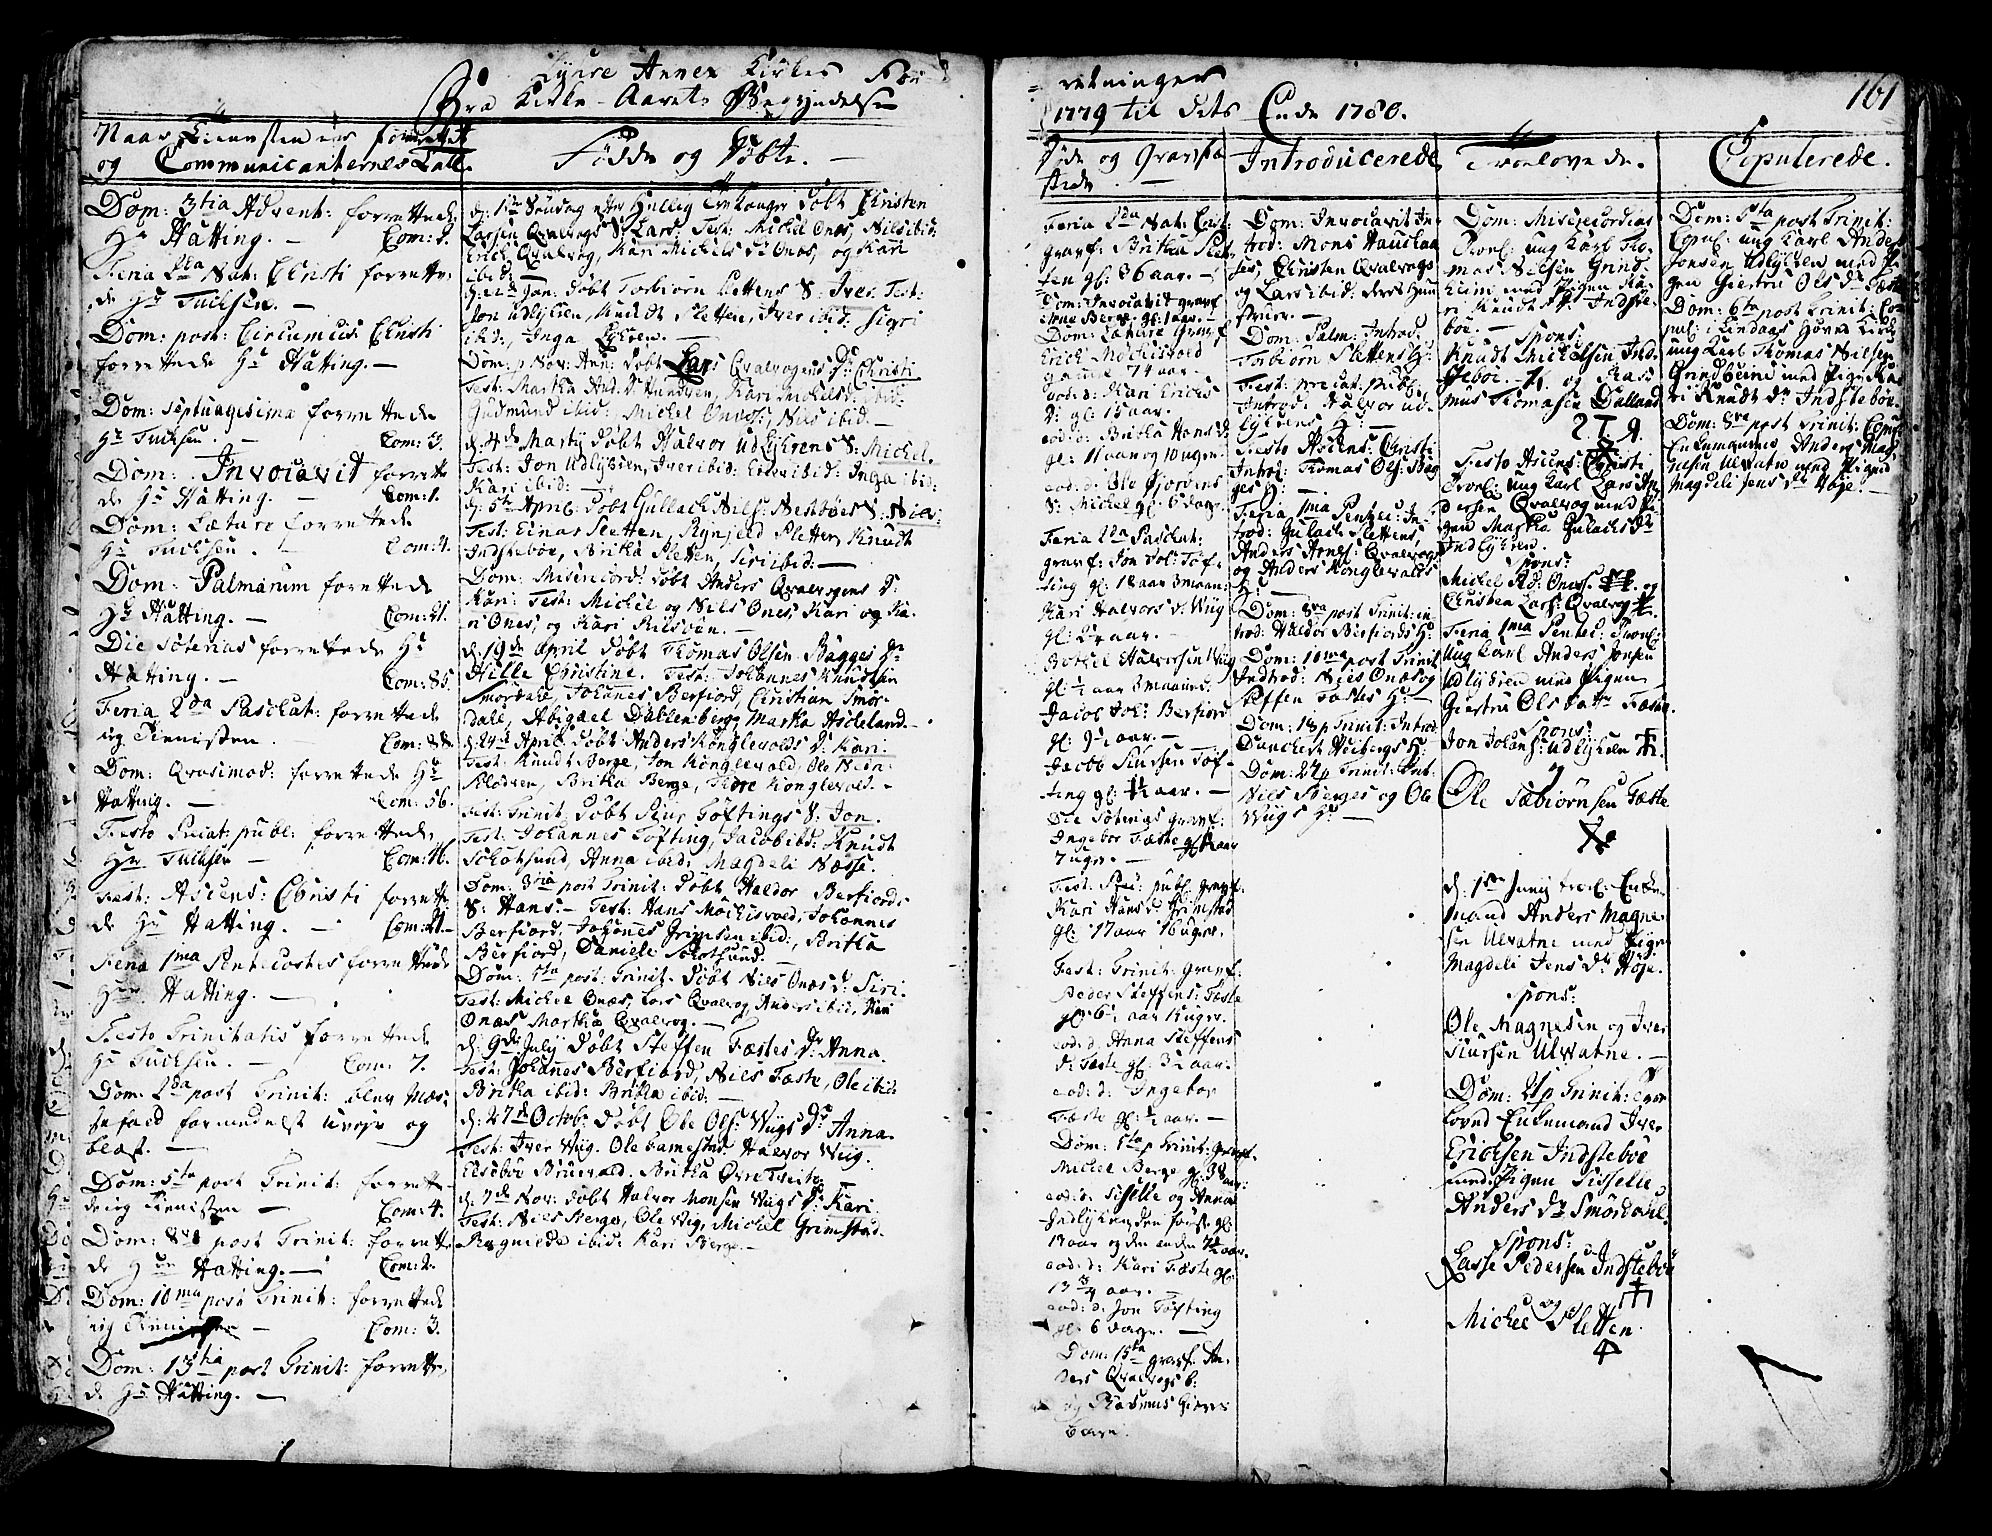 Lyure Annex Kirkes For
retninger
Fra Kirke-Aarets Begyndelse
1779 til dets Ende 1780.
161
Naar Tienesten er forrettet
og Communicanternes Tall.
Dom: 3tia Advent: forrettede
Hr Hatting. - Com: 9.
Feria 2da Nat: Christi forrette:
de Hr Tuchsen. -
Dom: post: Circumcis: Christi
forrettede Hr Hatting. -
Dom: Septuagesima forrettede
Hr Tuchsen. - Com: 3.
Dom: Invocavit forrette
de Hr Hatting. - Com: 1.
Dom: Lætare forrettede
Hr Tuchsen. - Com: 4.
Dom: Palmarum forrettede
Hr Hatting. - Com: 21.
Die Soterias forrettede Hr
Hatting. - Com: 85.
Feria 2da Paschat: forrettede
ieg Tienisten. - Com: 88.
Dom: Qvasimod: forrettede Hr
Hatting. - Com: 56.
Festo Precat: publ: forrettede
Hr Tuchsen - Com: 16.
Fest: Ascens: Christi forrette
de Hr Hatting. - Com: 21.
Feria 1ma Pentecostes forrettede
Hr Hatting. -
Festo Trinitatis forrettede
Hr Tuchsen. - Com: 7.
Dom: 2da post Trinit: blev Mes-
sefald formedelst uveir og
blæst. -
Dom: 5ta post Trinit: forrette-
de ieg Tienisten - Com: 4.
Dom: 8va post Trinit: forrette
de Hr Hatting. - Com: 2.
Dom: 10ma post Trinit: forrettede
ieg Tienisten - Com: 3.
Dom: 13tia post Trinit: forrette,
de Hr Hatting. -
Fødde og Døbte. -
d: 1ste Søndag efter Hellig Tre Konger døbt Christen
Larsen Qvalvogs S: Lars. Test: Michel Onæs, Nils ibid:
Erich Qvalvog, Kari Michels dr Onæs, og Kari
ibid: -
Jan: døbt Torbiørn Slettens S: Iver. Test:
Jon Udlykien, Knudt Sletten, Iver ibid: Sigri
ibid:, Inga Lykren. -
Dom: p Nov: Ann: døbt Lars Qvalvogens Dr Christi
Test: Martha And: dr Hundven, Kari Michelsd: ibid:
Gudmund ibid: Michel Onnes:, Nils ibid: -
d: 4de Martij døbt Halvor Udlykrens S: Michel.
Test: Jon Udlykien, Iver ibid: Elen ibid: Inga ibid:
Kari ibid: -
d: 5te April: døbt Gullach Nils: Nestbøes S: Niels
Test: Einar Sletten, Rynjeld Sletten, Knudt
Indstebøe, Britha Sletten, Siri ibid: -
Dom: Misericord: døbt Anders Qvalvogens D:
Kari: Test: Michel og Nils Ones, Kari og Ka-
ri Ones, og Kari Rilsvøen. -
d: 19de April døbt Thomas Olsen Bagges Dr
Hille Christine. Test: Johannes Knudsen
Smørdale, Johannes Berfiord, Christian Smør-
dall, Abigael Dallenberg Martha Ascheland. -
d: 24de April døbt Anders Konglevolds Dr Kari.
Test: Knudt Berge, Jon Konglevold, Ole Nien-
Klodven, Britha Berge, Thore Konglevold. -
Fest: Trinit: døbt Siur Toftings S: Jon.
Test: Johannes Tofting, Jacob ibid: Knudt
Schotsund, Anna ibid: Magdeli Næsse.
Dom: 3tia post Trinit: døbt Haldor Berfiords
S: Hans. - Test: Hans Mochisvold, Johannes
Berfiord, Johannes Grimsen ibid:, Britha
Berfiord, Daniele Schotsund. -
Dom: 5ta post: Trinit: døbt Nils Onæs D: Siri.
Test: Michel Onæs, Lars Qvalvog, Anders ibid:, Kari
Onæs, Martha Qvalvog. -
d: 9de July døbt Steffen Fæstes Dr Anna.
Test: Johannes Berfiord, Nils Fæste, Ole ibid:
Britha ibid: Britha ibid: -
d: 27de Octob: døbt Ole Ols: Wiigs Dr Anna.
Test: Iver Wiig. Ole Gamestad. Halvor Wiig.
Elsebøe Bruvold. Britha Øvre Tveite.
d: 7de Nov: døbt Halvor Monsen Wiigs Dr Kari.
Test: Nils Berge, Ole Wiig, Michel Grimstad.
Ragnilde ibid: Kari Berge. -
Døde og Gravstæ
stede. -
Feria 2da Nat: Christ:
gravf: Britha Slet
ten gl: 36 aar. -
Dom: Invocavit gravf
Berge gl: 1 aar. -
Dom: Lætare Gravf
Erich Mochisvold
gammel 74 aar. -
eod: d: Kari Erichs
D: gl: 15 aar.
eod: d: Britha Hans d:
gl: 11 aar og 10 uger.
eod: d: Ole Fjordens
S: Michel gl: 6 dage. -
Feria 2da Paschat:
gravf: Jon Sol: Tof-
ting gl: 18 aar 3 maan:
Kari Halvors d: Wiig
gl: 2½ aar. -
Bothel Halvorsen Wiig
gl: ½ aar 3 maaned:
Jacob Joh: Berfiord
gl: 9½ aar. -
Jacob Siursen Tof-
ting gl: 1½ aar. -
Die Soterias gravf:
Ingebor Fæste gl: 2 aar
7 uger. -
Fest: Prec: publ: gravf:
Kari Hans d: Grimstad
gl: 17 aar 16 uger. -
Fest: Trinit: gravf:
Peder Steffens: Fæste
gl: 6½ aar 1 uger.
eod: d: Anna Steffens
d: Fæste gl: 3½ aar.
eod: d: Ingebor
Fæste gl: ½ aar. -
Dom: 5ta p Trinit: gravf:
Michel Berge gl: 38 aar:
eod: d: Siselle og Anna
Indlyken, den første gl:
13 aar og den anden 7½ aar.
eod: d: Kari Fæste gl:
13 ¾ aar. -
eod: d: Jon Tofting
gl: 6 dage. -
Dom: 15ta gravf: An-
ders Qvalvogs b:
og Rasmus Giers
barn.
Introducerede
Dom: Invocavit In
trod: Mons Haukaa
ses, Christen Qvalvogs
og Lars ibid: deres Hu-
struer. -
Dom: Palm: Introd:
Torbiørn Slettens H:
Fest: precat: publ:
Introd: Halvor Ud-
lykrens H: -
Festo Ascens: Christi
Introd: Thomas Ols: Bag
ges H: -
Feria 1ma Pentec: In-
trod: Gulach Slettens,
Anders Arnes: Qvalvogs
og Anders Konglevolds
H: -
Dom: 8va post Trinit: in-
trod: Haldor Berfiords H:
Dom: 10ma post Trinit
Introd: Nils Onæs og
Steffen Fæstes H: -
Dom: 18 p Trinit: Introd:
H:
Dom: 24 p Trinit: Int:
Nils Berges og Ole
Wiigs H: -
Trolovede.
Dom: Misericordias
Trovl: ung Karl Tho-
mas Nilsen Grind
heim med Pigen Ka-
ri Knudt dr Indste-
bøe. -
Spons:
Knudt Michelsen Ind-
stebøe. og Ras-
mus Thomasen Dalland
Festo Ascens: Christi
Trovl: ung Karl Lars An
dersen Qvalvog med Pi-
gen Martha Gulachs dr
Indlykren. -
Spons:
Michel And: Oness. og
Christen Lars: Qvalvog
Feria 1ma Pentec: Trovl:
ung Karl Anders Jonsen
Udlykren med Pigen
Giertru Ols datter Fæste.
Spons:
Jon Johans: Udlykren
Ole Sæbiørnsen Fæste
d: 1ste Junij trol: Enke-
mand Anders Magne-
sen Ulvatne med Pigen
Magdeli Jens dr Høje.
Spons:
Ole Magnesen og Iver
Siursen Ulvatne. -
Dom: 21 p Trinit: tror-
loved Enkemand Iver
Ericksen Indstebøe
med Pigen Sisselle
Anders dr Smørdahl.
Spons:
Lasse Pedersen Indstebøe
og
Michel Sletten.
Copulerede.
Dom: 5ta post Trinit:
Copul: ung Karl Anders
Jonsen Udlykren med Pi
gen Giertru Ols dr Fæste
Dom: 6ta post Trinit: Co-
pul: i Lindaas Hoved Kirke
ung Karl Thomas Nilsen
Grindheim med Pige Ka-
ri Knudt dr Indstebøe.
Dom: 8va post Trinit: Copul
Enkemand Anders Mag
nesen Ulvatn med Pigen
Magdeli Jens dr Høje. -